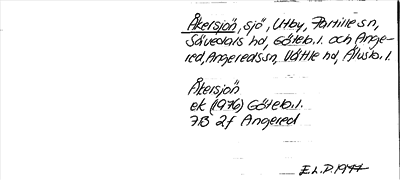 Åkersjön, sjö, Utby, Partille sn,
Sävedals hd, Göteb. l. och Ange-
red, Angereds sn, Vättle hd, Älvsb. l.
Åkersjön
ek (1976) Göteb. l.
7B 2f Angered
E.L.D. 1977